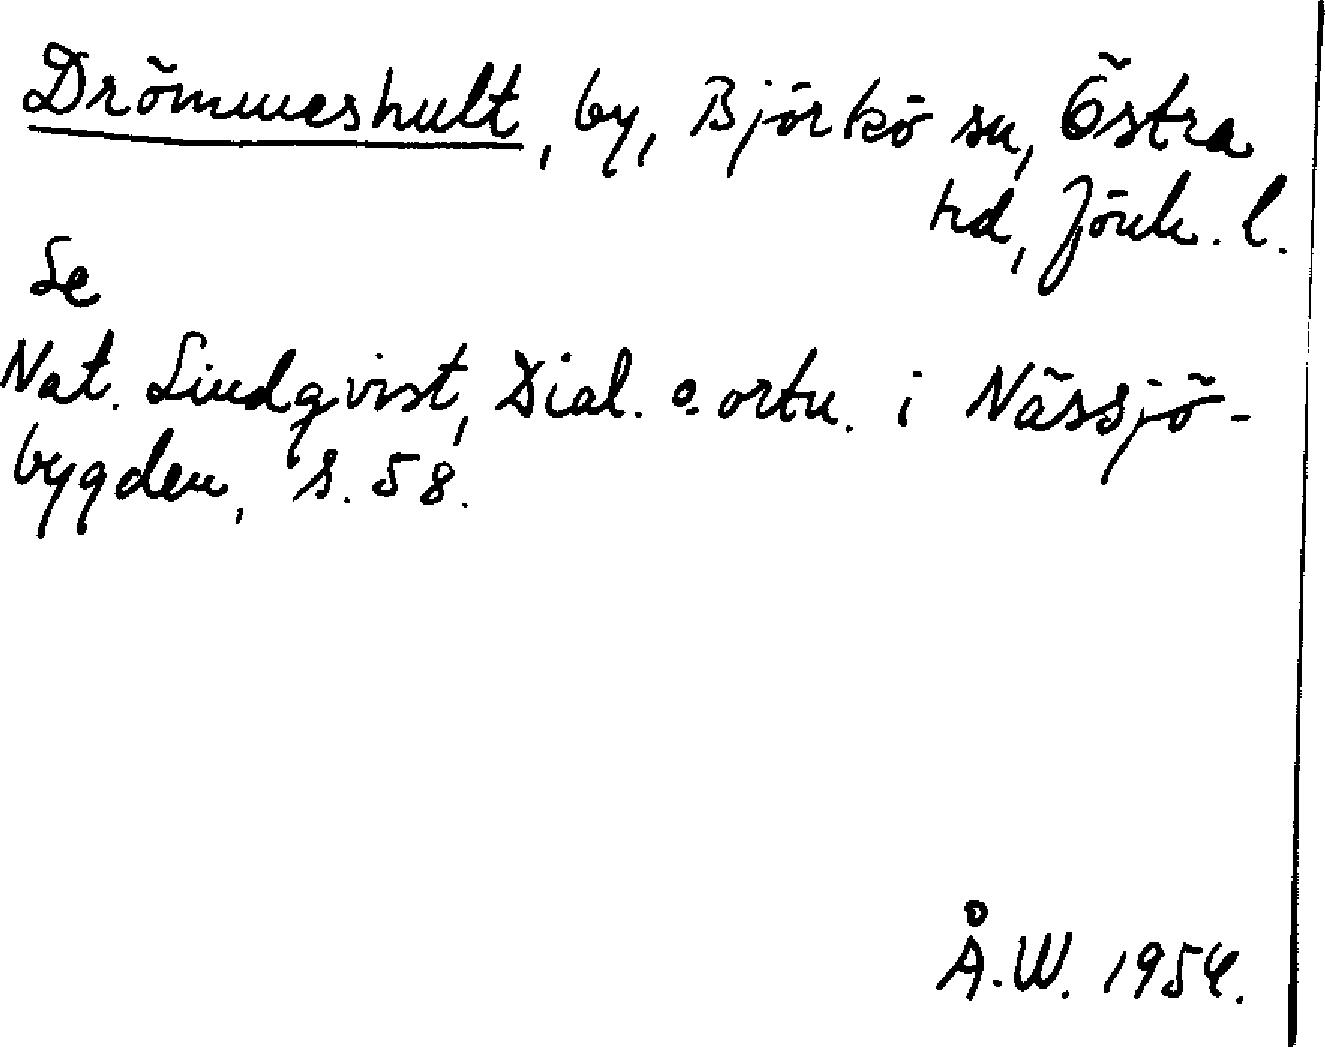 Drömmeshult, by, Björkö sn, Östra
hd, Jönk. l.
Se
Nat. Lindqvist, Dial. o. ortn. i Nässjö-
bygden, s. 58.
Å. W. 1954.